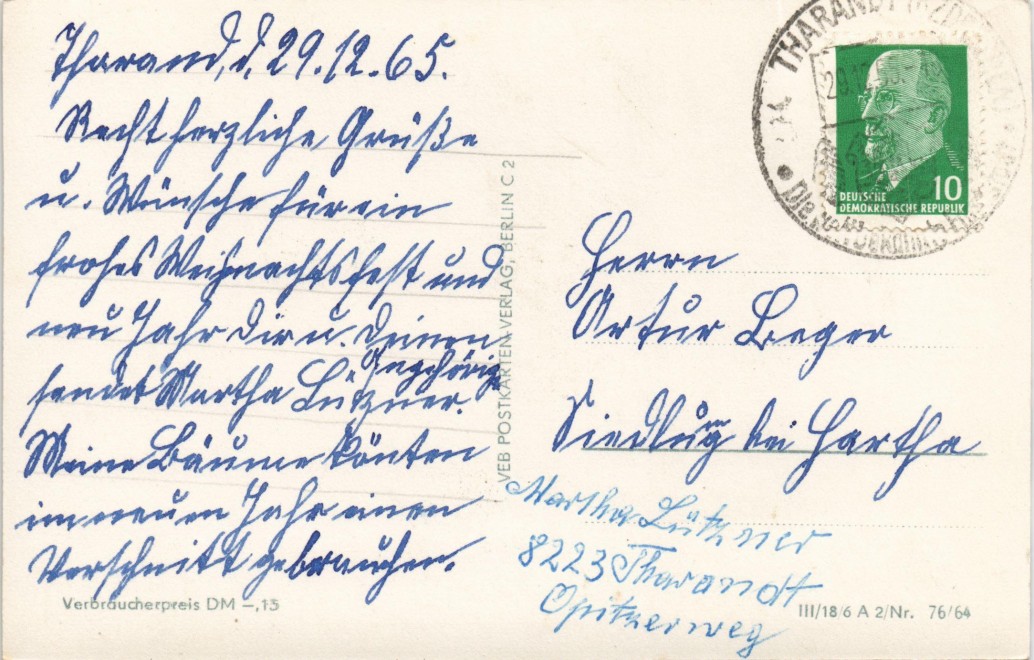 Tharand, d. 29.12.65.
Recht herzliche Grüße
u. Wünsche für ein
frohes Weihnachtsfest und
neu Jahr Dir u. Deinen
Angehörig
sendet Martha Lützner.
Meine Bäume könten
im neuen Jahr einen
Verschnitt gebrauchen.
Verbraucherpreis DM –,15
VEB POSTKARTEN-VERLAG, BERLIN C 2
THARANDT
DEUTSCHE 10
DEMOKRATISCHE REPUBLIK
Herrn
Artur Beger
Siedlung bei Hartha
Martha Lützner
8223 Tharandt
Opitzerweg
III/18/6 A 2/Nr. 76/64